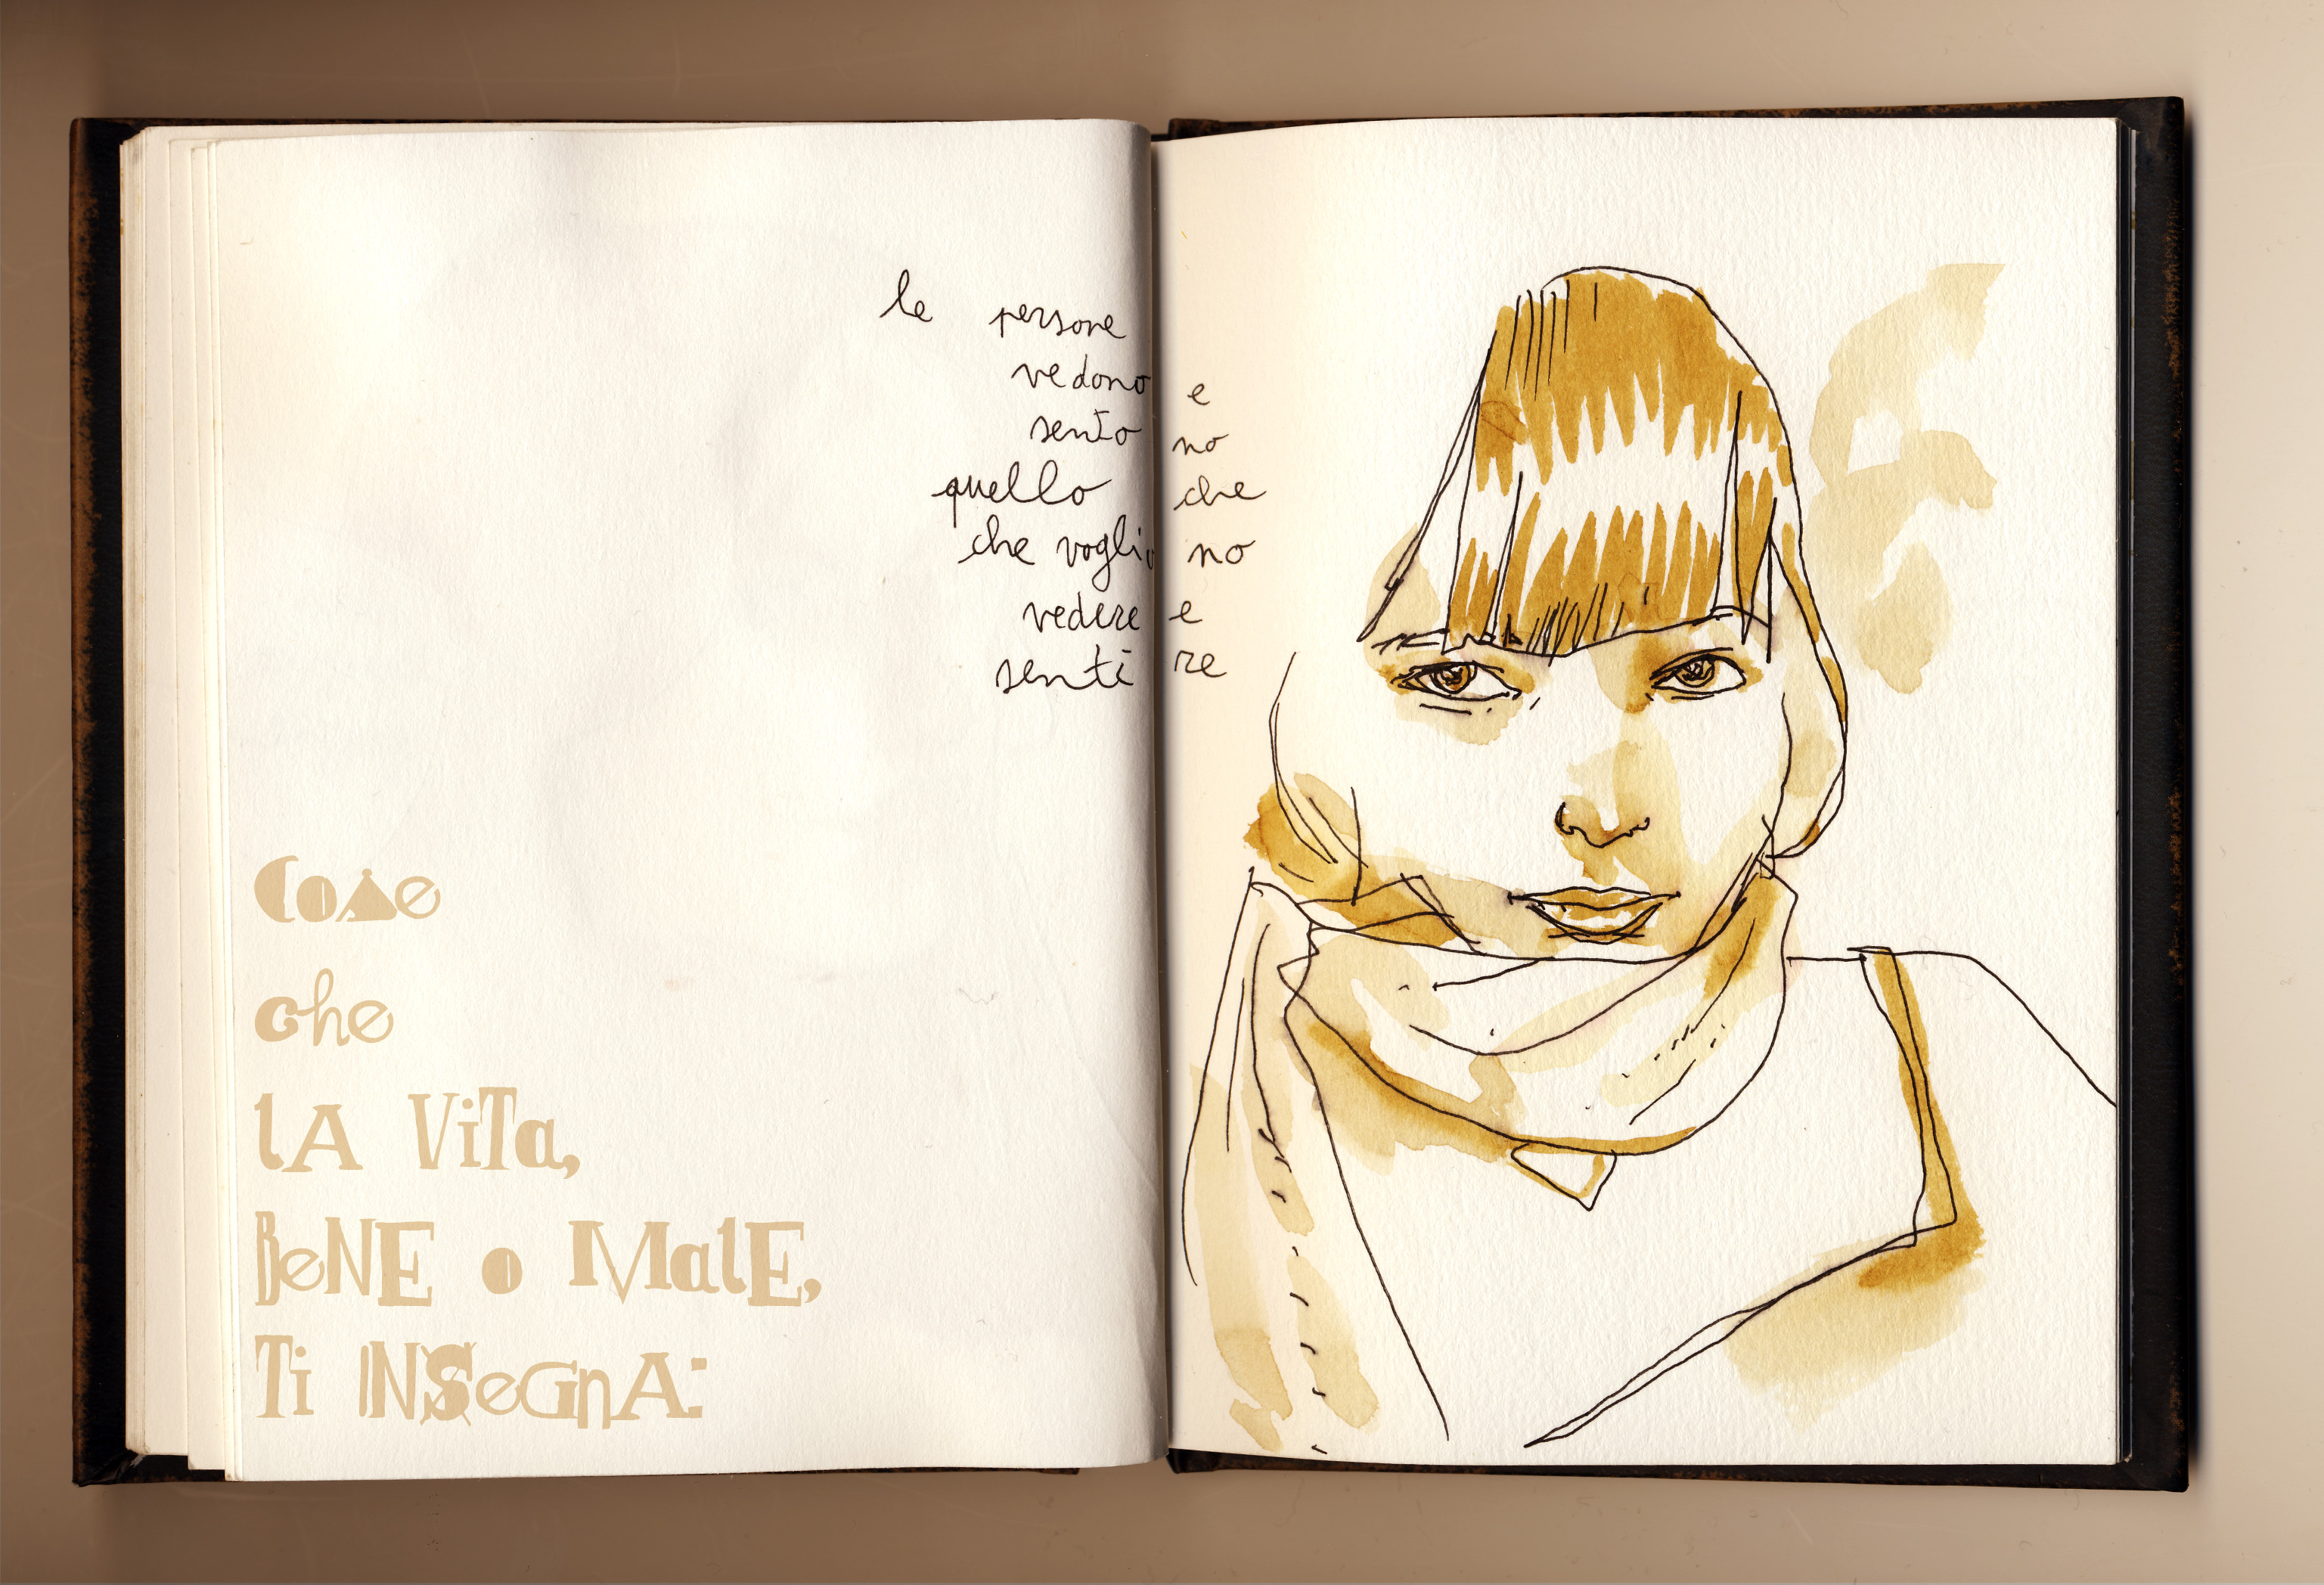 le persone
vedono e
sento no
quello che
che voglio no
vedere e
senti re
CoSe
che
lA ViTa,
BeNE o MalE,
Ti INSeGnA: